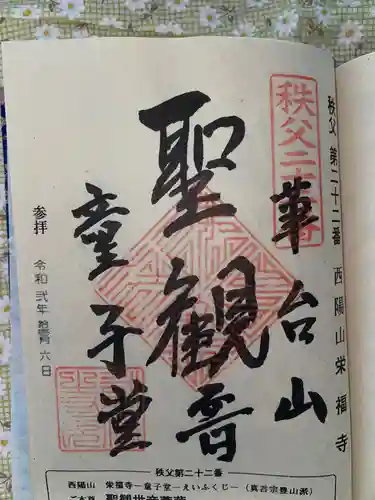 秩父 第二十二番 西陽山栄福寺
秩父二十二番
華台山
聖観音
童子堂
参拝
令和 弐年 拾壹月 六日
秩父第二十二番
西陽山 栄福寺―童子堂―えいふくじ―(真言宗豊山派)
ご本尊 聖観世音菩薩